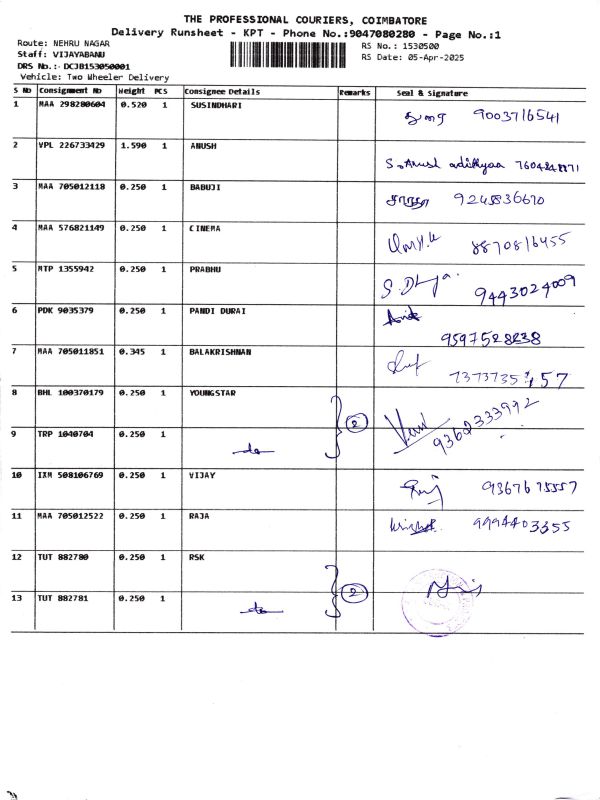 THE PROFESSIONAL COURIERS, COIMBATORE
Delivery Runsheet - KPT - Phone No.:9047080280 - Page No.:1
Route: NEHRU NAGAR
RS No.: 1530500
Staff: VIJAYABANU
RS Date: 05-Apr-2025
DRS No.:- DCJB153050001
Vehicle: Two Wheeler Delivery
S No Consignment No Weight PCS Consignee Details Remarks Seal & Signature
1 MAA 298280604 0.520 1 SUSINDHARI 9003716541
2 VPL 226733429 1.590 1 ANUSH
S. Anush adithyaa
3 MAA 705012118 0.250 1 BABUJI 9245836670
4 MAA 576821149 0.250 1 CINEMA 8870816455
5 MTP 1355942 0.250 1 PRABHU 9443024009
6 PDK 9035379 0.250 1 PANDI DURAI
9597528238
7 MAA 705011851 0.345 1 BALAKRISHNAN
8 BHL 100370179 0.250 1 YOUNGSTAR 2 9362333992
9 TRP 1040704 0.250 1 do
10 IXM 508106769 0.250 1 VIJAY
11 MAA 705012522 0.250 1 RAJA 9994403355
12 TUT 882780 0.250 1 RSK 2
13 TUT 882781 0.250 1 do